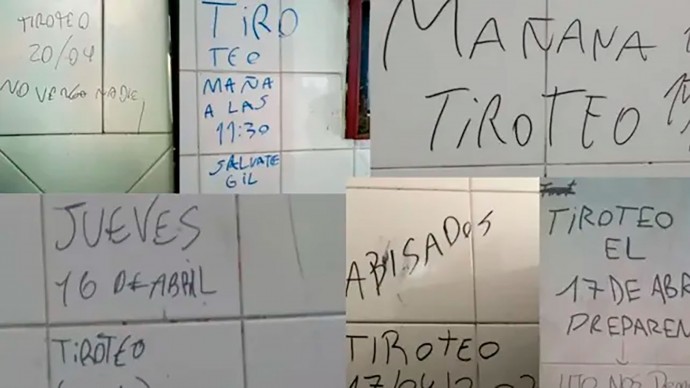 TIROTEO
20/04
NO VENGA NADIE
TIRO
TEO
MAÑA
A LAS
11:30
SALVATE
GIL
MAÑANA
TIROTEO
JUEVES
16 DE ABRIL
TIROTEO
ABISADOS
TIROTEO
17/04/2
TIROTEO
EL
17 DE ABR
PREPAREN